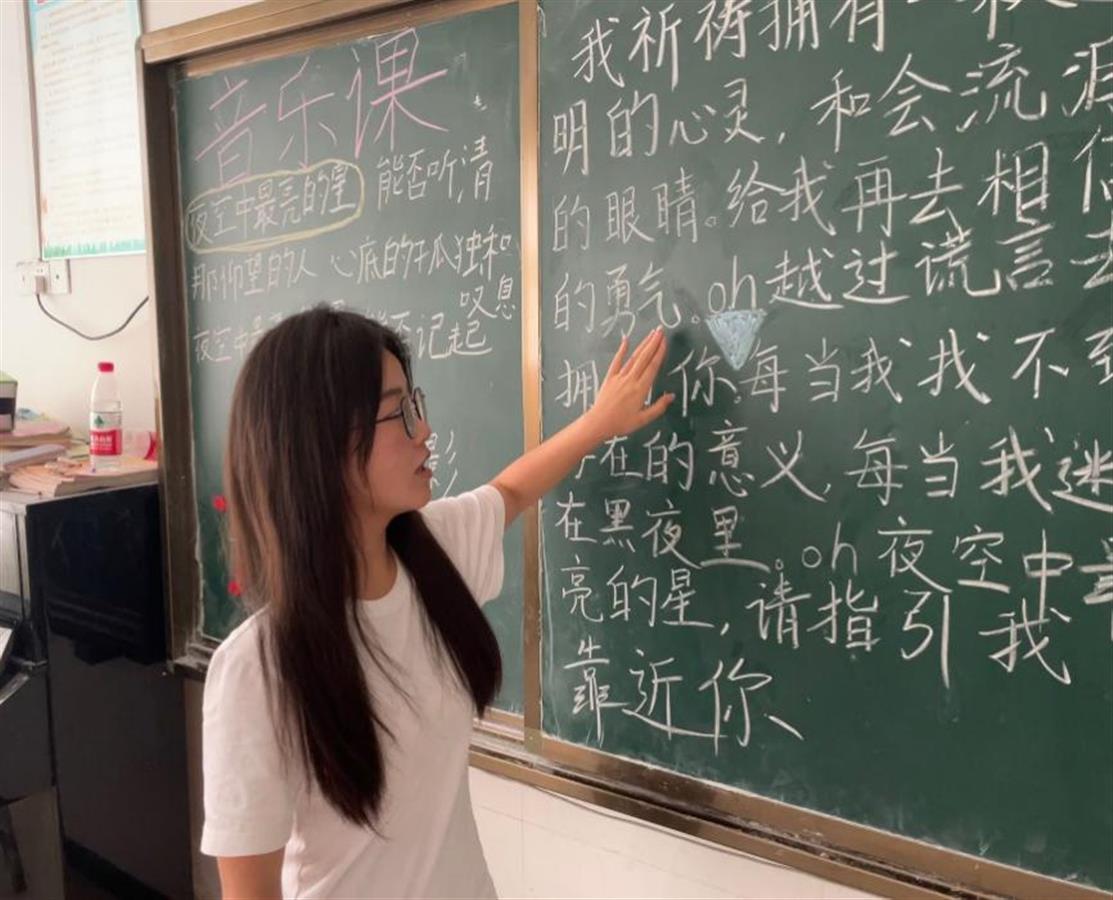 音乐课
夜空中最亮的星 能否听,清
那仰望的人 心底的孤独和
叹息
夜空中 否记起
影
我祈祷拥有一
明的心灵,和会流泪
的眼睛。给我再去相
的勇气。oh越过谎言去
拥 你。每当我找不到
在的意义,每当我迷
在黑夜里。oh夜空中
亮的星,请指引我
靠近你